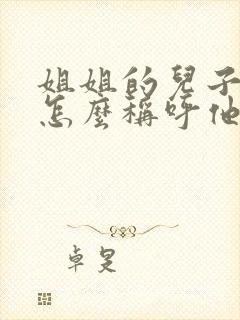 姐姐的兒子
怎麼稱呼他
卓旻